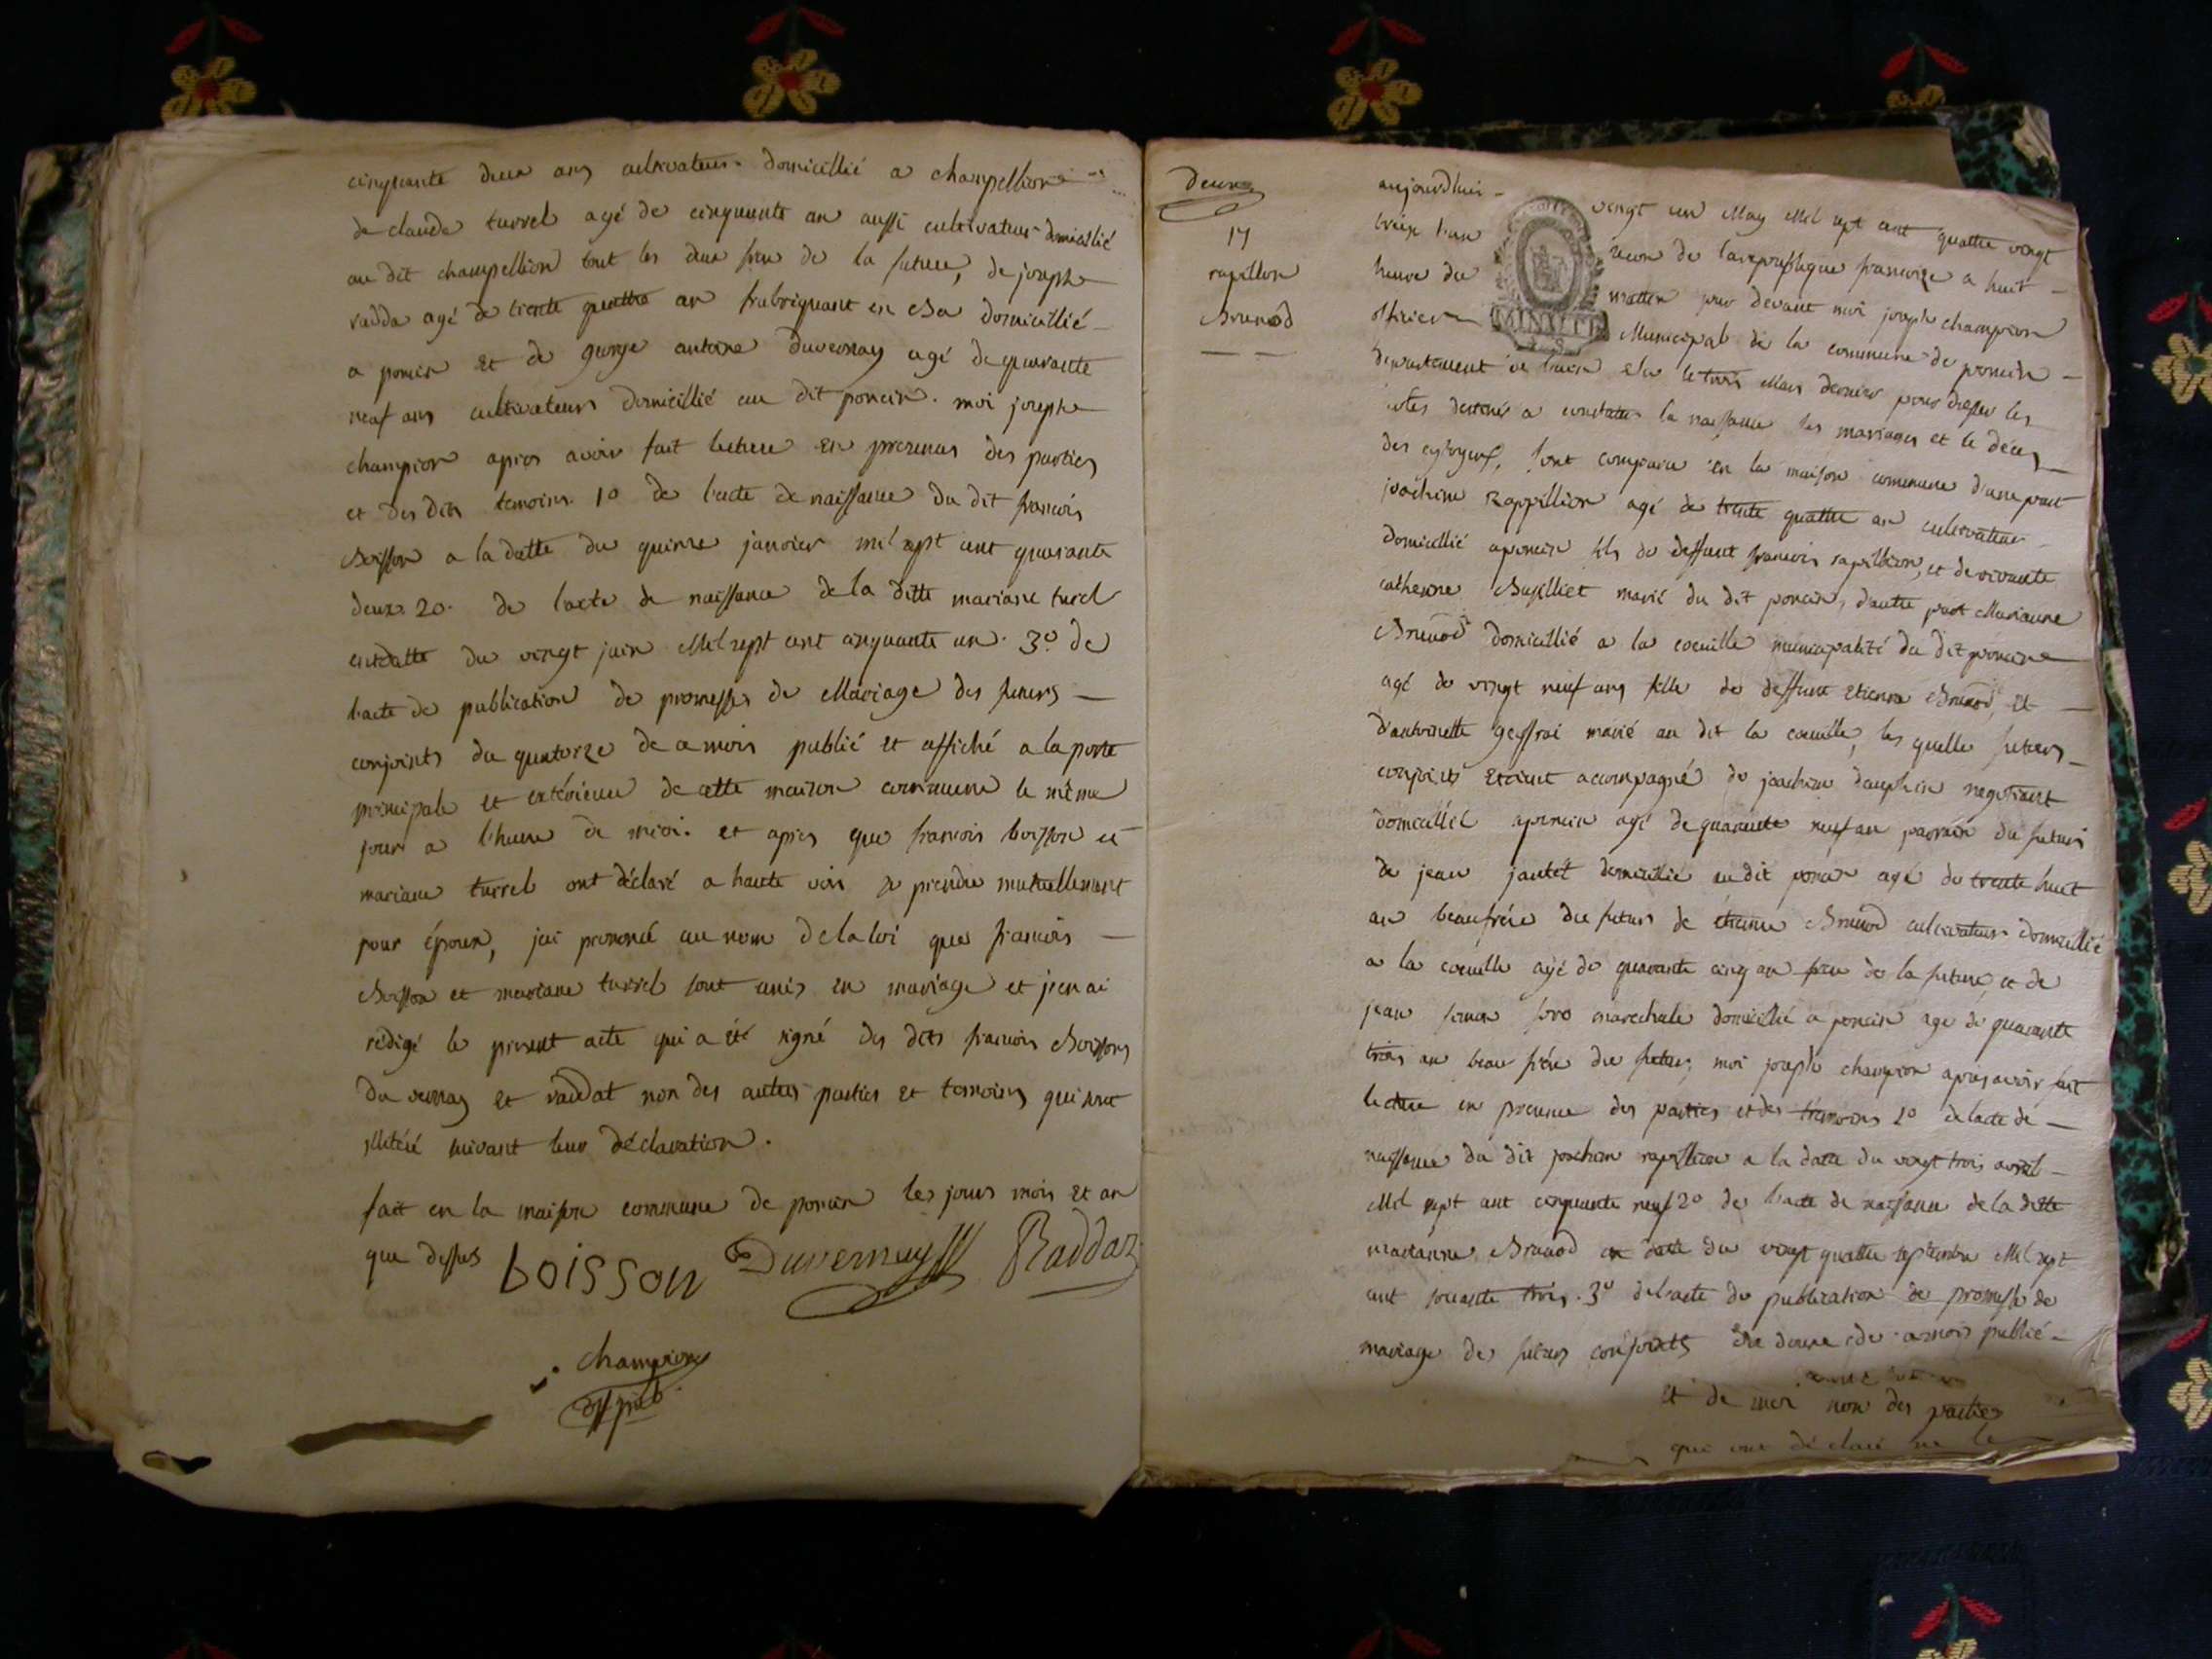 cinquante deux ans cultivateur domicillié a champellion
de claude turrel agé de cinquante an aussi cultivateur domicillié
au dit champellion tout les deux frere de la future, de joseph
radda agé de trente quattre an frabriquant en domicillié
a poncin et de gorge antoine duvernay agé de quarante
neuf ans cultivateurs domicillié au dit poncin. moi joseph
champion apres avoir fait lecture en presences des parties
et des dits temoins. 1º de l'acte de naissance du dit francois
Boisson a la datte du quinze janvier mil sept cent quarante
deux. 2º. de l'acte de naissance de la ditte mariane turel
en datte du vingt juin Mil sept cent cinquante un. 3º. de
l'acte de publication de promesses de Mariage des futurs
conjoints du quatorze de ce mois publié et affiché a la porte
principale et extérieure de cette maison commune le même
jour a l'heure de midi. et apres que francois boisson et
mariane turrel ont déclaré a haute voix se prendre mutuellement
pour époux, jai prononcé au nom de la loi que francois
Boisson et mariane turrel sont unis en mariage et j'en ai
rédigé le present acte qui a été signé des dits francois Boissons
du vernay et raddat non des autres parties et temoins qui sont
illitéré suivant leur déclaration.
fait en la maison commune de poncin les jours mois et an
que dessus boisson Duvernay Raddaz
champion
off publ.
Deux
17
rapillon
Brunod
aujourdhui vingt un May Mil sept cent quattre vingt
treize l'an second de la republique francoise a huit
heure du mattin pour devant moi joseph champion
MINUTE
officier Municipal de la commune de poncin
departement de l'ain élu le trois Mars dernier pour dresser les
actes destiné a constater la naissance les mariages et le déces
des citoyens, sont comparu en la maison commune d'une part
joachim Rappillion agé de trente quattre an cultivateur
domicillié a poncin fils de deffunt francois rapillion, et de vivante
catherine marié du dit poncin, d'autre part Marianne
Brunod domicillié a la coeuille municipalité du dit poncin
agé de vingt neuf ans fille de deffunt Etienne Brunod, Et
d'antoinette geffrai marié au dit la coeuille, les quelle futurs
conjoints etoient accompagné de joachim dauphin negotiant
domicillié a poncin agé de quarante neuf an parrain du futur
de jean jantet domicillié au dit poncin agé de trente huit
an beaufrére du futur de étienne Brunod cultivateur domicillié
a la coeuille agé de quarante cinq an frere de la future, et de
jean maréchale domicillié a poncin age de quarante
trois an beau frére du futur; moi joseph champion apres avoir fait
lecture en presence des parties et des témoins 1º de lacte de
naissance du dit joachim rapillion a la datte du vingt trois avril
Mil sept cent cinquante neuf 2º de l'acte de naissance de la ditte
marianne Brunod en date du vingt quattre septembre Mil sept
cent soixante trois. 3º de l'acte de publication de promesse de
mariage des futurs conjoints du douze de ce mois publié
et de moi non des parties
qui ont déclaré ne le